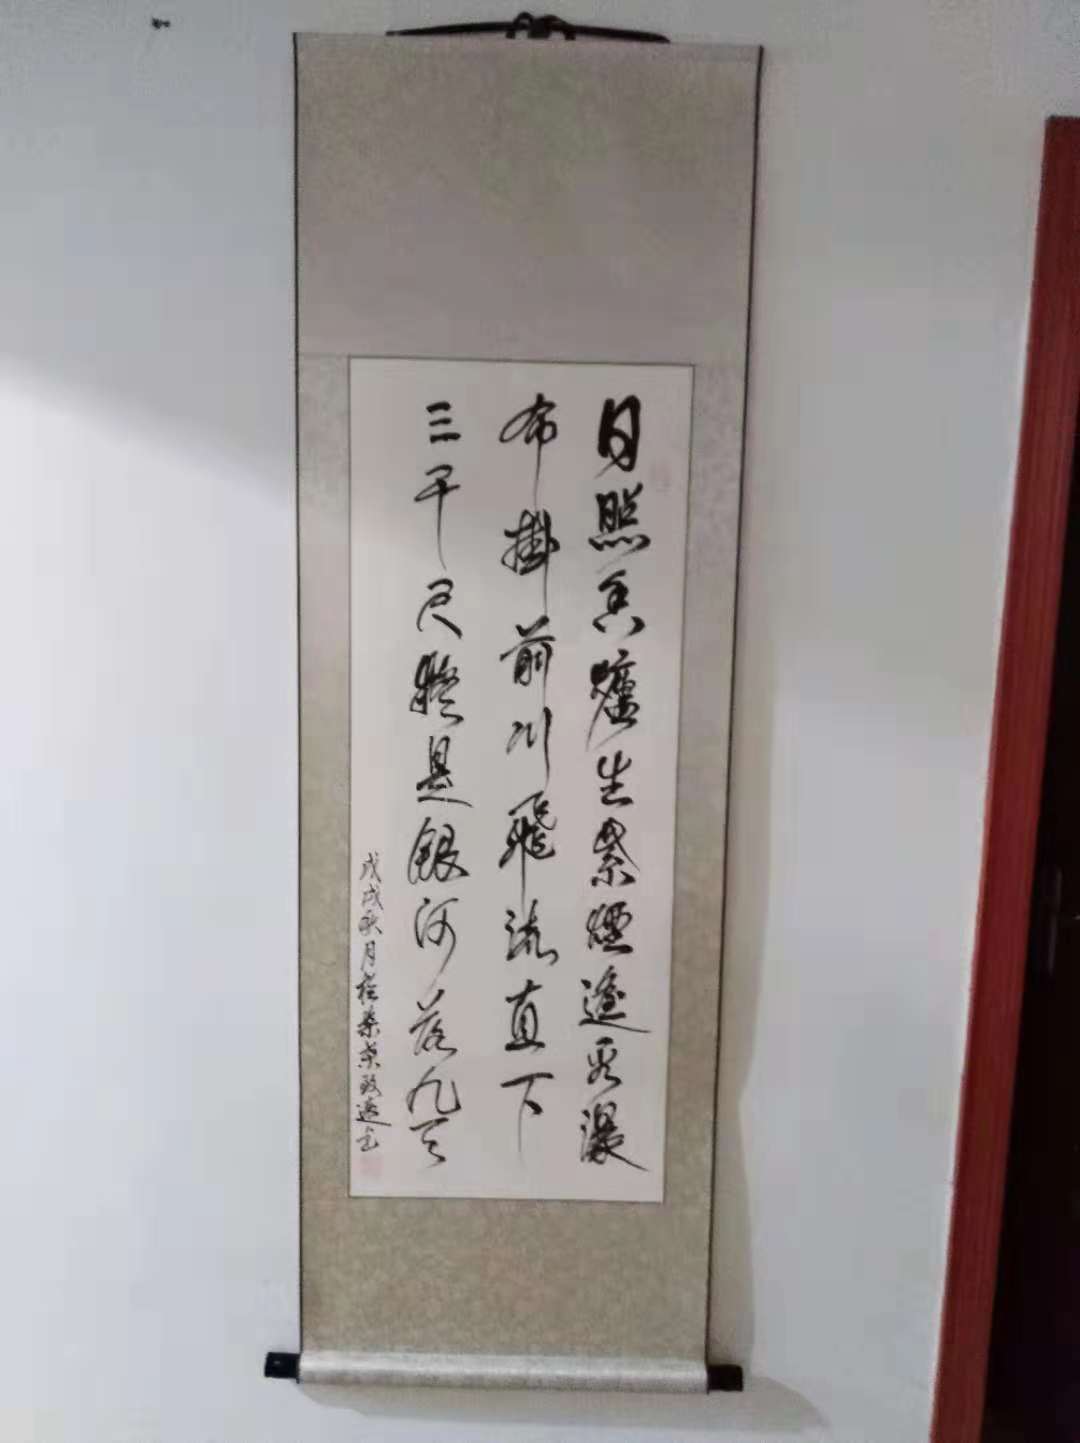 日照香爐生紫煙遙看瀑
布掛前川飛流直下
三千尺疑是銀河落九天
戊戌秋月於